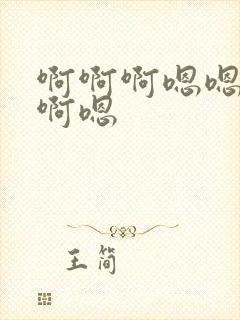 啊啊啊嗯嗯
啊嗯
王简